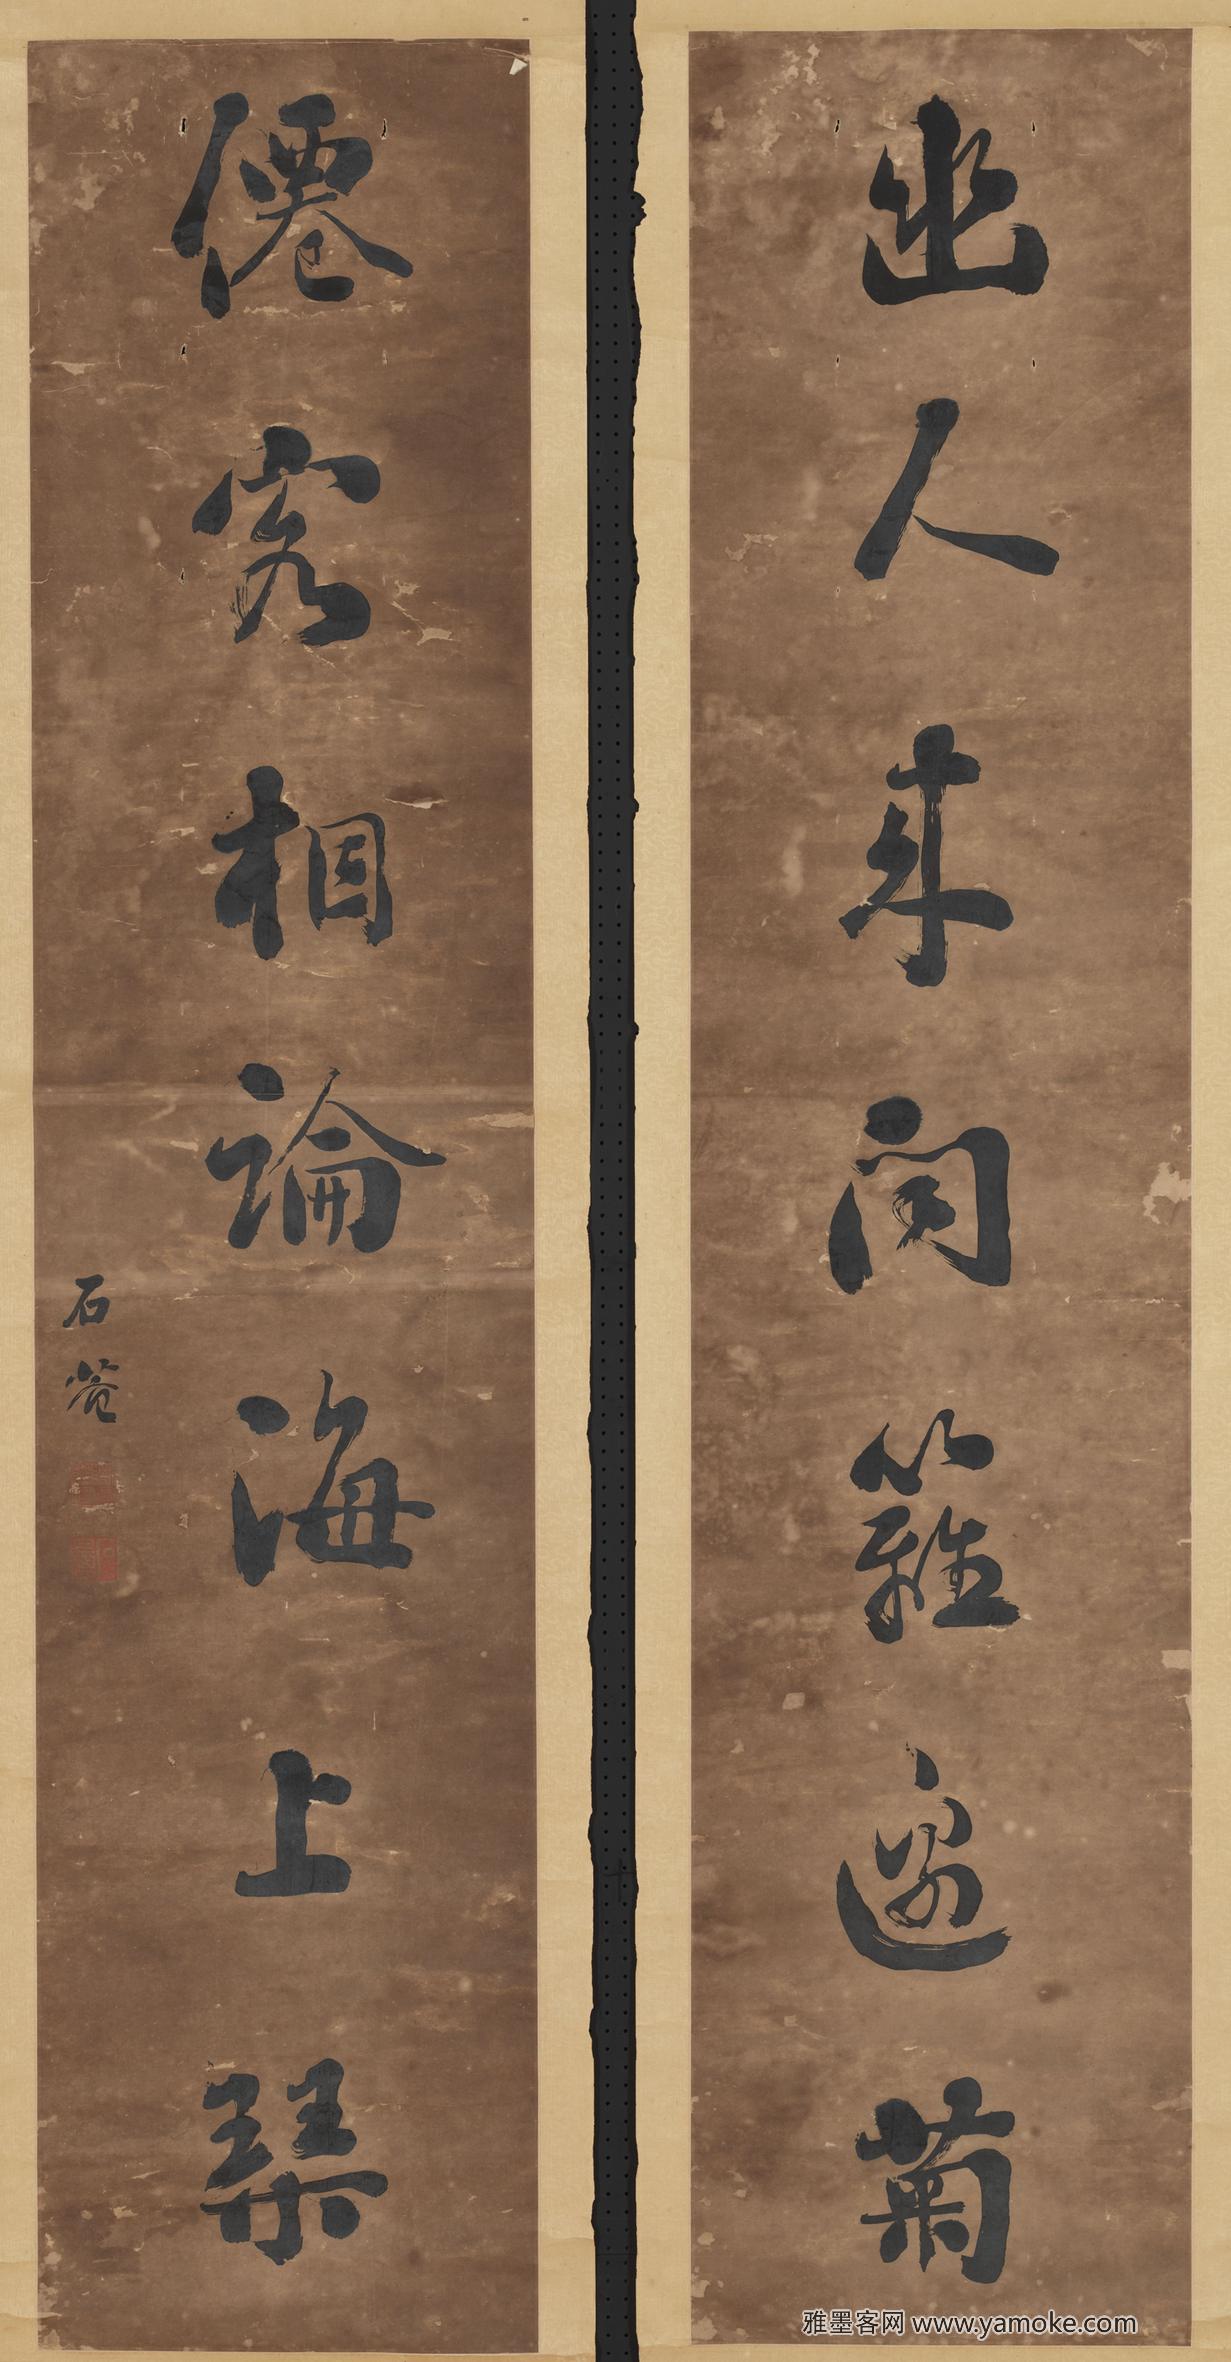 幽人來問籬邊菊
僊客相論海上琹
石菴
雅墨客网 www.yamoke.com